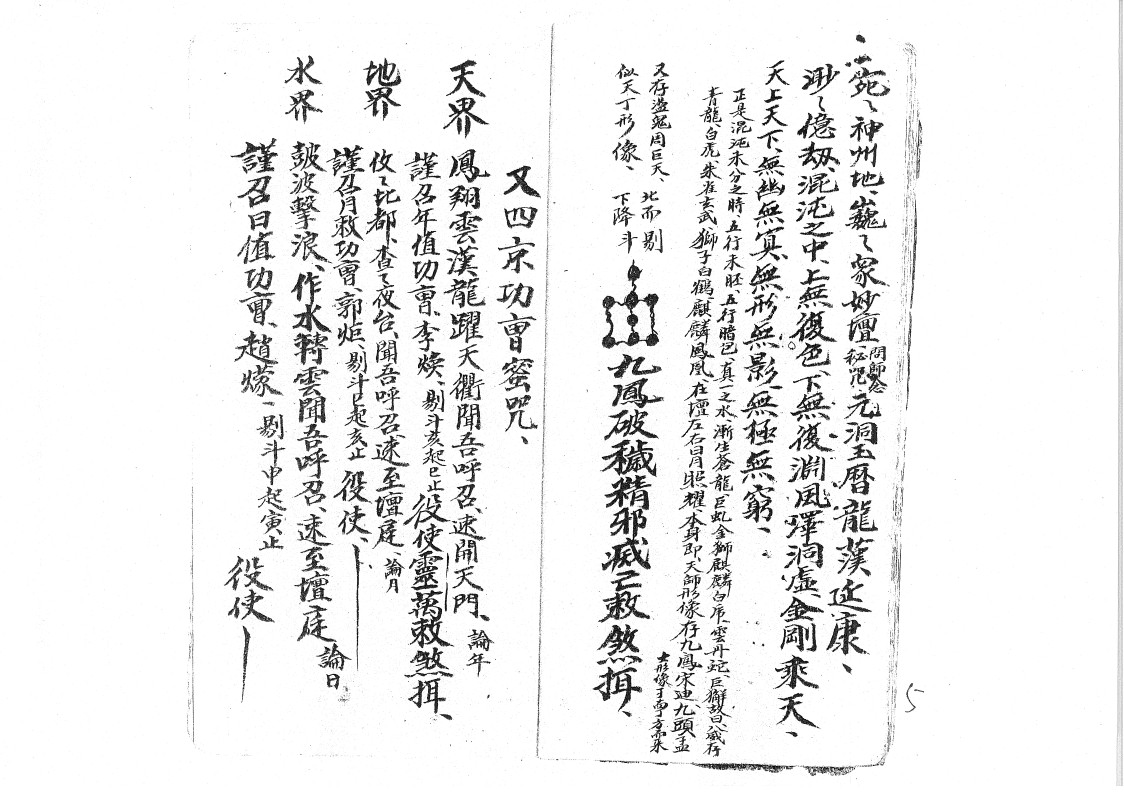 苑〻神州地、巍〻眾妙壇、秘咒 問師念 元洞玉曆龍漢延康、
渺〻億劫、混沌之中、上無復色、下無復淵、風澤洞虛、金剛乘天、
天上天下、無幽無冥、無形無影、無極無窮、
正是混沌未分之時、五行未胚、五行暗包、真一之水、漸生蒼龍、巨虬金獅麒麟白
青龍、白虎、朱雀玄武、獅子白鶴、麒麟鳳凰、在壇左右、日月照耀、本身即天師形像、存九鳳宋迪九頭
又存 鬼周巨天、北而剔
似天丁形像、下降斗
九鳳破穢精邪滅亡敕煞揖、
又四京功曹蜜咒、
天界 鳳翔雲漢、龍躍天衢、聞吾呼召、速開天門、論年
謹召年值功曹、李煥、剔斗亥起巳止 役使靈萬敕煞揖、
地界 攸〻北都、杳〻夜台、聞吾呼召、速至壇庭、論月
謹召月敕功曹、郭炬、剔斗巳起亥止 役使、
水界 皷波擊浪、作水轉雲、聞吾呼召、速至壇庭、論日
謹召日值功曹、趙㷯、剔斗申起寅止 役使
5